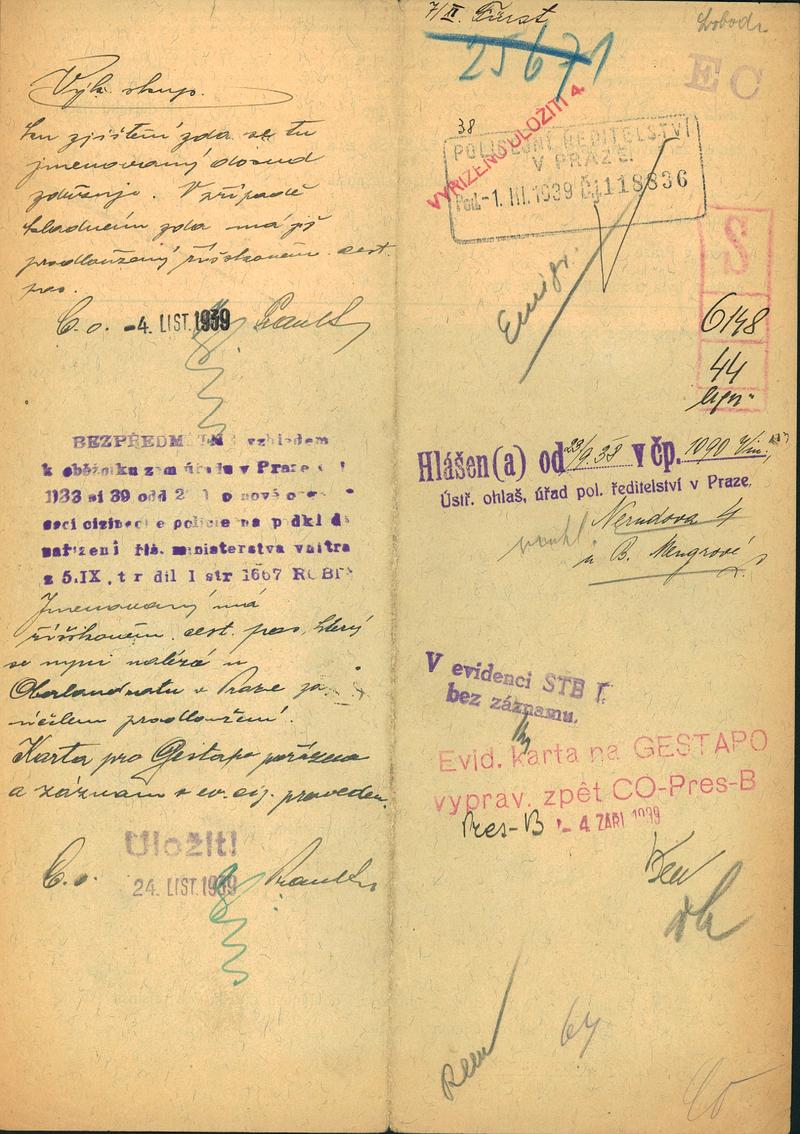 Výk. skup.
ku zjištění zda se tu
jmenovaný dosud
zdržuje. V případě
kladném zda má již
prodloužený říškoněm. cest.
pas.
C. o. -4. LIST. 1939
BEZPŘEDMĚTNÉ vzhledem
k oběžníku zem úřadu v Praze
1133 ai 39 odd 2 o nové
saci cizinec e policie na podkl de
nařízení říš. ministerstva vnitra
z 5.IX, t r díl I str 1667 RGBl
Jmenovaný má
říškoněm. cest. pas, který
se nyní nalézá u
Oberlandratu v Praze za
účelem prodloužení.
Karta pro Gestapo pořízena
a záznam v ev. ciz. proveden.
Uložit!
C. o. 24. LIST. 1939
7/II. Fürst
25671
Svoboda
EC
VYŘÍZENO ULOŽITI 4.
38
POLICEJNÍ ŘEDITELSTVÍ
V PRAZE
Pod. -1. III. 1939 Čj 118836
Emigr.
S
6148
44
Hlášen(a) od 23/9.38 v čp. 1090 Vin.
Ústř. ohlaš, úřad pol. ředitelství v Praze.
Nerudova 4
u B. Mengrové
V evidenci STB I
bez záznamu.
Evid. karta na GESTAPO
vyprav. zpět CO-Pres-B
Pres-B - 4 ZÁŘÍ 1939
64